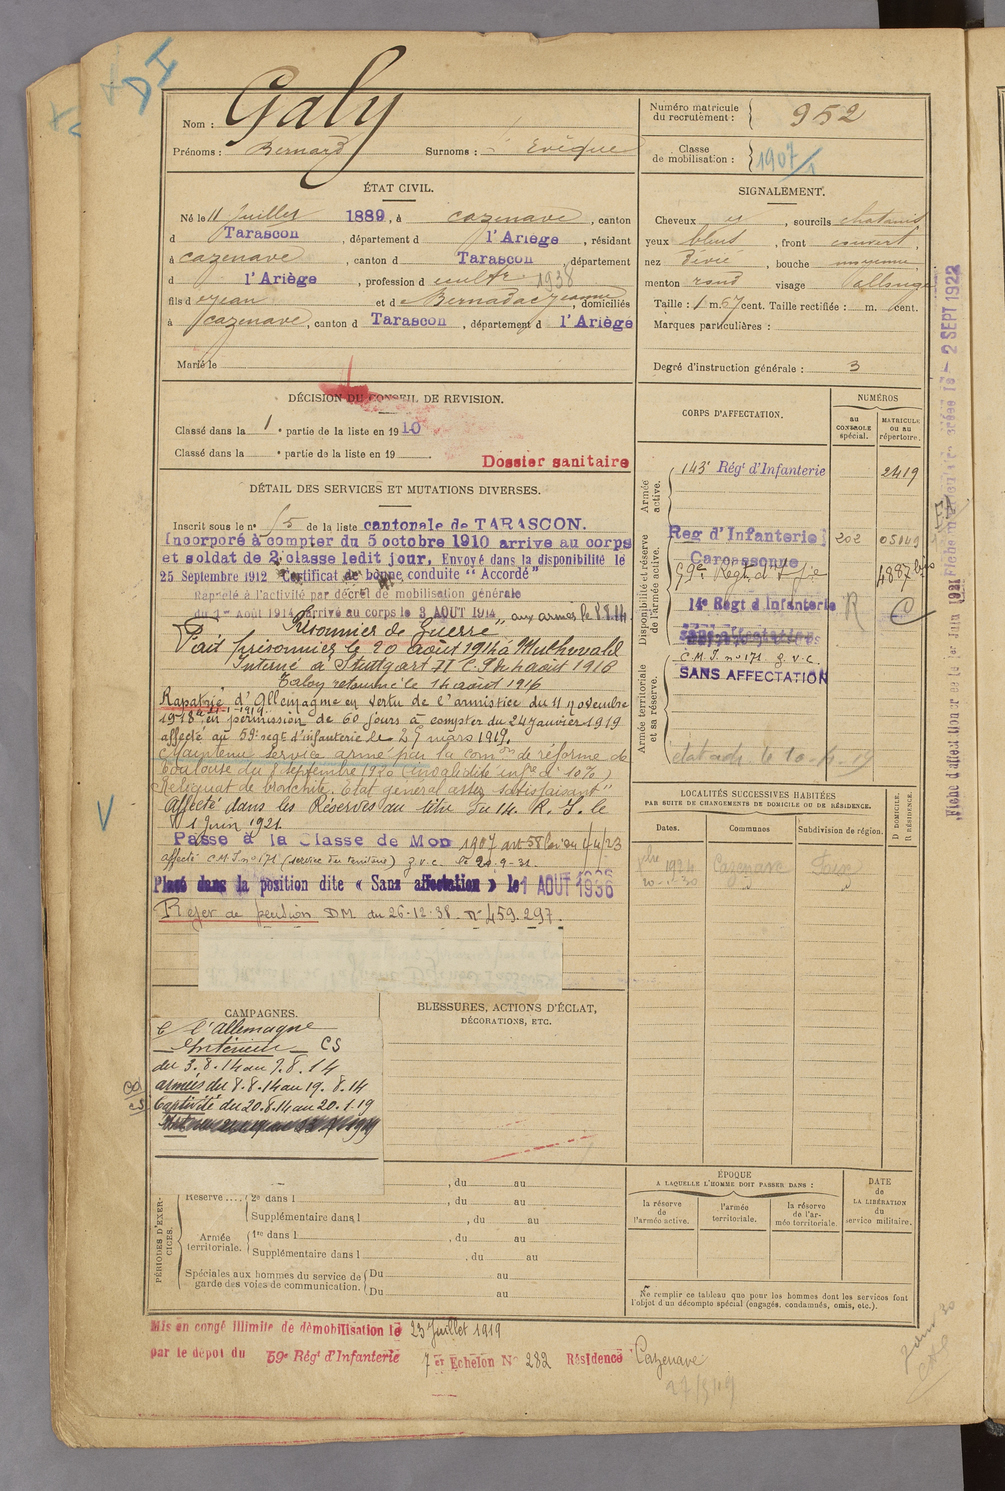 DI
Nom : Galy
Prénoms : Bernard Surnoms : Evêque
Numéro matricule du recrutement : 952
Classe de mobilisation : 1907/1
ÉTAT CIVIL.
Né le 11 Juillet 1889, à Cazenave, canton
d Tarascon, département d l'Ariège, résidant
à Cazenave, canton d Tarascon, département
d l'Ariège, profession d cultr 1938
fils d e Jean et d e Bernadac Jeanne, domiciliés
à Cazenave, canton d Tarascon, département d l'Ariège
Marié le
SIGNALEMENT.
Cheveux et, sourcils chatains
yeux bleus, front couvert,
nez dévié, bouche moyenne,
menton rond visage allongé
Taille : 1 m. 67 cent. Taille rectifiée : m. cent.
Marques particulières :
Degré d'instruction générale : 3
DÉCISION DU CONSEIL DE REVISION.
Classé dans la 1e partie de la liste en 1910
Classé dans la e partie de la liste en 19
Dossier sanitaire
DÉTAIL DES SERVICES ET MUTATIONS DIVERSES.
Inscrit sous le n° 15 de la liste cantonale de TARASCON.
Incorporé à compter du 5 octobre 1910 arrive au corps
et soldat de 2e classe ledit jour, Envoyé dans la disponibilité le
25 Septembre 1912 Certificat de bonne conduite "Accordé"
Rappelé à l'activité par décret de mobilisation générale
du 1er Août 1914 arrivé au corps le 3 AOUT 1914, aux armées le 8.8.14
"Prisonnier de Guerre"
Fait prisonnier le 20 août 1914 à Mulhwald
Interné à Stuttgart II
Talon retourné le 14 août 1916
Rapatrié d'Allemagne en vertu de l'armistice du 11 novembre
1918 en permission de 60 jours à compter du 24 janvier 1919
affecté au 59e regt d'infanterie le 29 mars 1919.
Maintenu service armé par la comon de réforme de
Toulouse du 8 septembre 1920 (invalidité infre à 10%)
Reliquat de bronchite. Etat général assez satisfaisant"
Affecté dans les Réserves au titre du 14e R. I. le
1 Juin 1921
Passé à la Classe de Mob 1907 art 58 loi du 1/4/23
affecté C.M.I. n° 171 (service du territoire) g.v.c. le 20-9-31.
Placé dans la position dite « Sans affectation » le 1 AOUT 1936
Rejet de pension DM du 26-12-38. n° 459.297.
CORPS D'AFFECTATION.
NUMÉROS
au CONTROLE spécial.
MATRICULE ou au répertoire.
Armée active.
143e Régt d'Infanterie 2419
Disponibilité et réserve de l'armée active.
Reg d'Infanterie 202 05149
Carcassonne
59e Regt d'Infie 4887 bis
14e Régt d Infanterie R C
Armée territoriale et sa réserve.
C.M.I. n° 171 g.v.c.
SANS AFFECTATION
Fiche d'affectation créée le 1er Juin 1921
2 SEPT 1922
LOCALITÉS SUCCESSIVES HABITÉES
PAR SUITE DE CHANGEMENTS DE DOMICILE OU DE RÉSIDENCE.
Dates. Communes Subdivision de région. D DOMICILE. R RÉSIDENCE.
1924 Cazenave Foix
CAMPAGNES.
C l'Allemagne
Intérieur CS
du 3.8.14 au 7.8.14
armées du 8.8.14 au 19.8.14
Captivité du 20.8.14 au 20.1.19
BLESSURES, ACTIONS D'ÉCLAT,
DÉCORATIONS, ETC.
PÉRIODES D'EXERCICES.
, du au
Réserve.... 2e dans l , du au
Supplémentaire dans l , du au
Armée territoriale. 1re dans l , du au
Supplémentaire dans l , du au
Spéciales aux hommes du service de garde des voies de communication. Du au
Du au
ÉPOQUE
A LAQUELLE L'HOMME DOIT PASSER DANS :
la réserve de l'armée active.
l'armée territoriale.
la réserve de l'armée territoriale.
DATE de LA LIBÉRATION du service militaire.
Ne remplir ce tableau que pour les hommes dont les services font
l'objet d'un décompte spécial (engagés, condamnés, omis, etc.).
Mis en congé illimité de démobilisation le 23 Juillet 1919
par le dépôt du 59e Régt d'Infanterie 7er Echelon N° 282 Résidence Cazenave